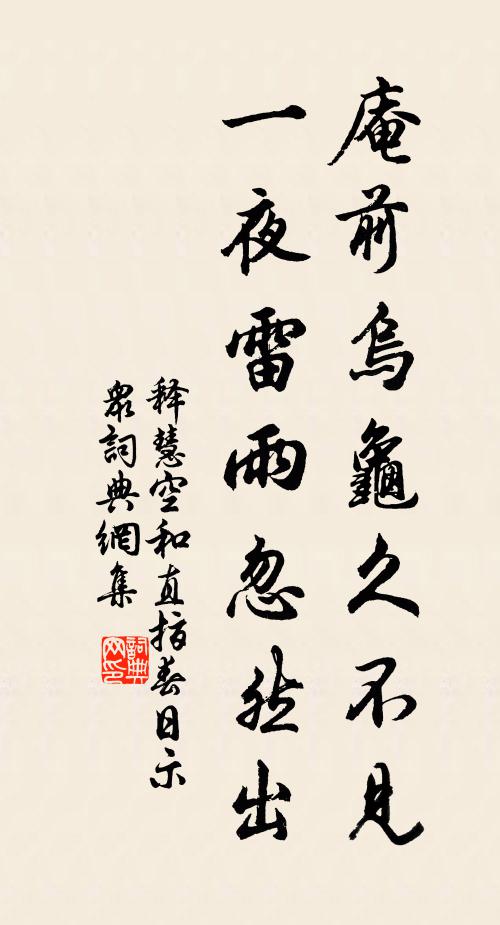 庵前烏龜久不見
一夜雷雨忽然出
釋慧空和直指春日示
眾詞典網集
詞典
網印